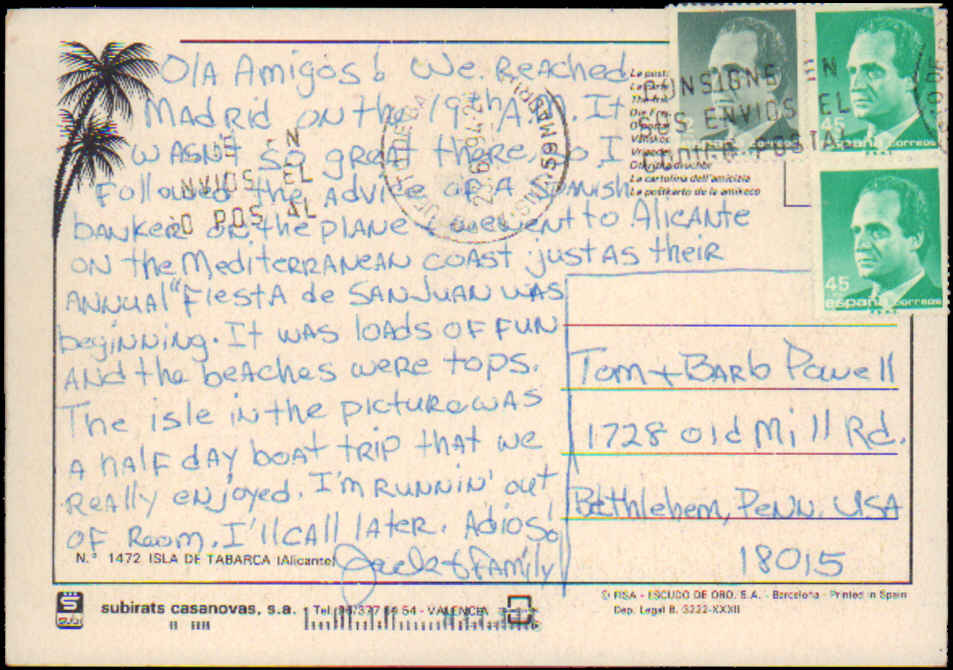 Ola Amigos! We Reached
Madrid on the 19th A.M. It
wasn't so great there, so I
Followed the advice of a Spanish
banker on the plane & we went to Alicante
on the Mediterranean coast just as their
annual "Fiesta de San Juan was
beginning. It was loads of fun
and the beaches were tops.
The isle in the picture was
a half day boat trip that we
really enjoyed. I'm runnin' out
of room. I'll call later. Adios!
Jack & family
N.º 1472 ISLA DE TABARCA (Alicante)
Tom + Barb Powell
1728 old Mill Rd.
Bethlehem, Penn. USA
18015
CONSIGNE EN
SUS ENVIOS EL
CODIGO POSTAL
E EN
NVIOS EL
O POSTAL
La cartolina dell'amicizia
La poŝtkarto de la amikeco
45
españa correos
45
españa correos
subirats casanovas, s.a.
Tel. 54 - VALENCIA
© FISA - ESCUDO DE ORO, S.A. - Barcelona - Printed in Spain
Dep. Legal B. 3222-XXXII